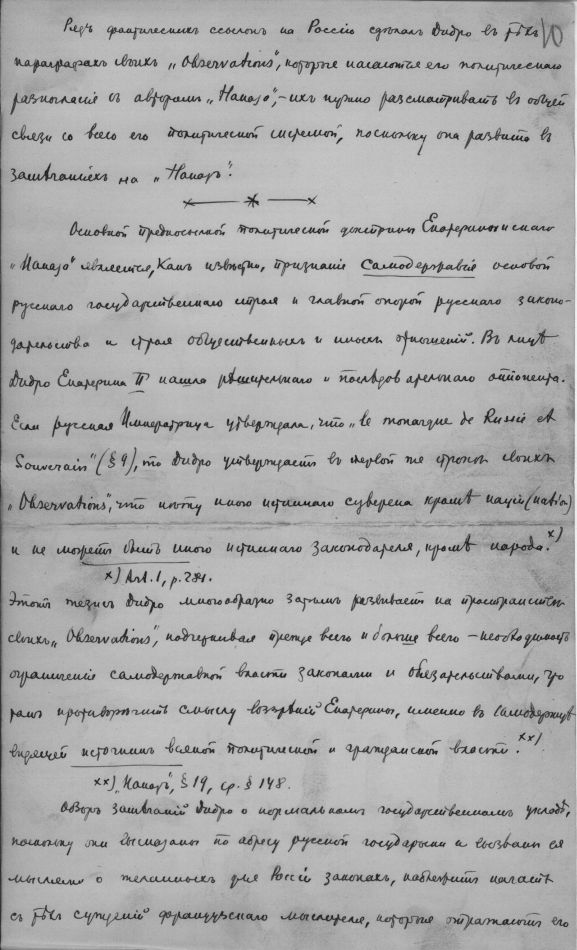 10
Рядъ фактическихъ ссылокъ на Россію сдѣлалъ Дидро въ тѣхъ
параграфахъ своихъ „Observations", которые касаются его политическаго
разногласія съ авторомъ „Наказа", – ихъ нужно разсматривать въ общей
связи со всего его политической системой, поскольку она развита въ
замѣчаніяхъ на „Наказъ".
Основной предпосылкой политической доктрины Екатерининскаго
„Наказа" является, какъ извѣстно, признаніе самодержавія основой
русскаго государственнаго строя и главной опорой русскаго законо-
дательства и строя общественныхъ и иныхъ отношеній. Въ лицѣ
Дидро Екатерина II нашла рѣшительнаго и послѣдовательнаго оппонента.
Если русская Императрица утверждала, что „le monarque de Russie est
Souverain" (§ 9), то Дидро утверждаетъ въ первой же строкѣ своихъ
„Observations", что нѣтъ иного истиннаго суверена кромѣ націи (nation)
и не можетъ быть иного истиннаго законодателя, кромѣ народа. x)
x) Art. 1, p. 281.
Этотъ тезисъ Дидро многообразно затѣмъ развиваетъ на пространствѣ
своихъ „Observations", подчеркивая прежде всего и больше всего – необходимость
ограниченія самодержавной власти законами и обязательствами, что
такъ противорѣчитъ смыслу воззрѣній Екатерины, именно въ самодержцѣ
видящей источникъ всякой политической и гражданской власти. xx)
xx) „Наказъ", § 19, ср. § 148.
Обзоръ замѣчаній Дидро о нормальномъ государственномъ укладѣ,
поскольку они высказаны по адресу русской государыни и вызваны ея
мыслями о желанныхъ для Россіи законахъ, надлежитъ начать
съ тѣхъ сужденій французскаго мыслителя, которые отражаютъ его